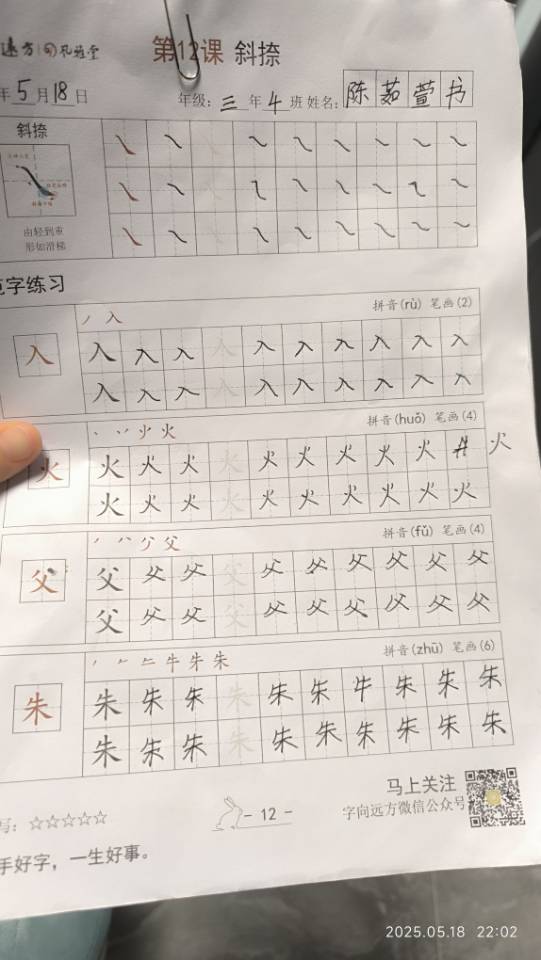 第12课 斜捺
年5月18日 年级:三年4班 姓名:陈茹萱书
斜捺
由轻到重
形如滑梯
范字练习
拼音(rù) 笔画(2)
入 入 入 入 入 入 入 入 入 入 入
入 入 入 入 入 入 入 入 入 入
拼音(huǒ) 笔画(4)
火 火 火 火 火 火 火 火 火 火 火
火 火 火 火 火 火 火 火 火 火
拼音(fǔ) 笔画(4)
父 父 父 父 父 父 父 父 父 父 父
父 父 父 父 父 父 父 父 父 父
拼音(zhū) 笔画(6)
朱 朱 朱 朱 朱 朱 朱 牛 朱 朱 朱
朱 朱 朱 朱 朱 朱 朱 朱 朱 朱
写:☆☆☆☆☆
- 12 -
马上关注
字向远方微信公众号
手好字，一生好事。
2025.05.18 22:02